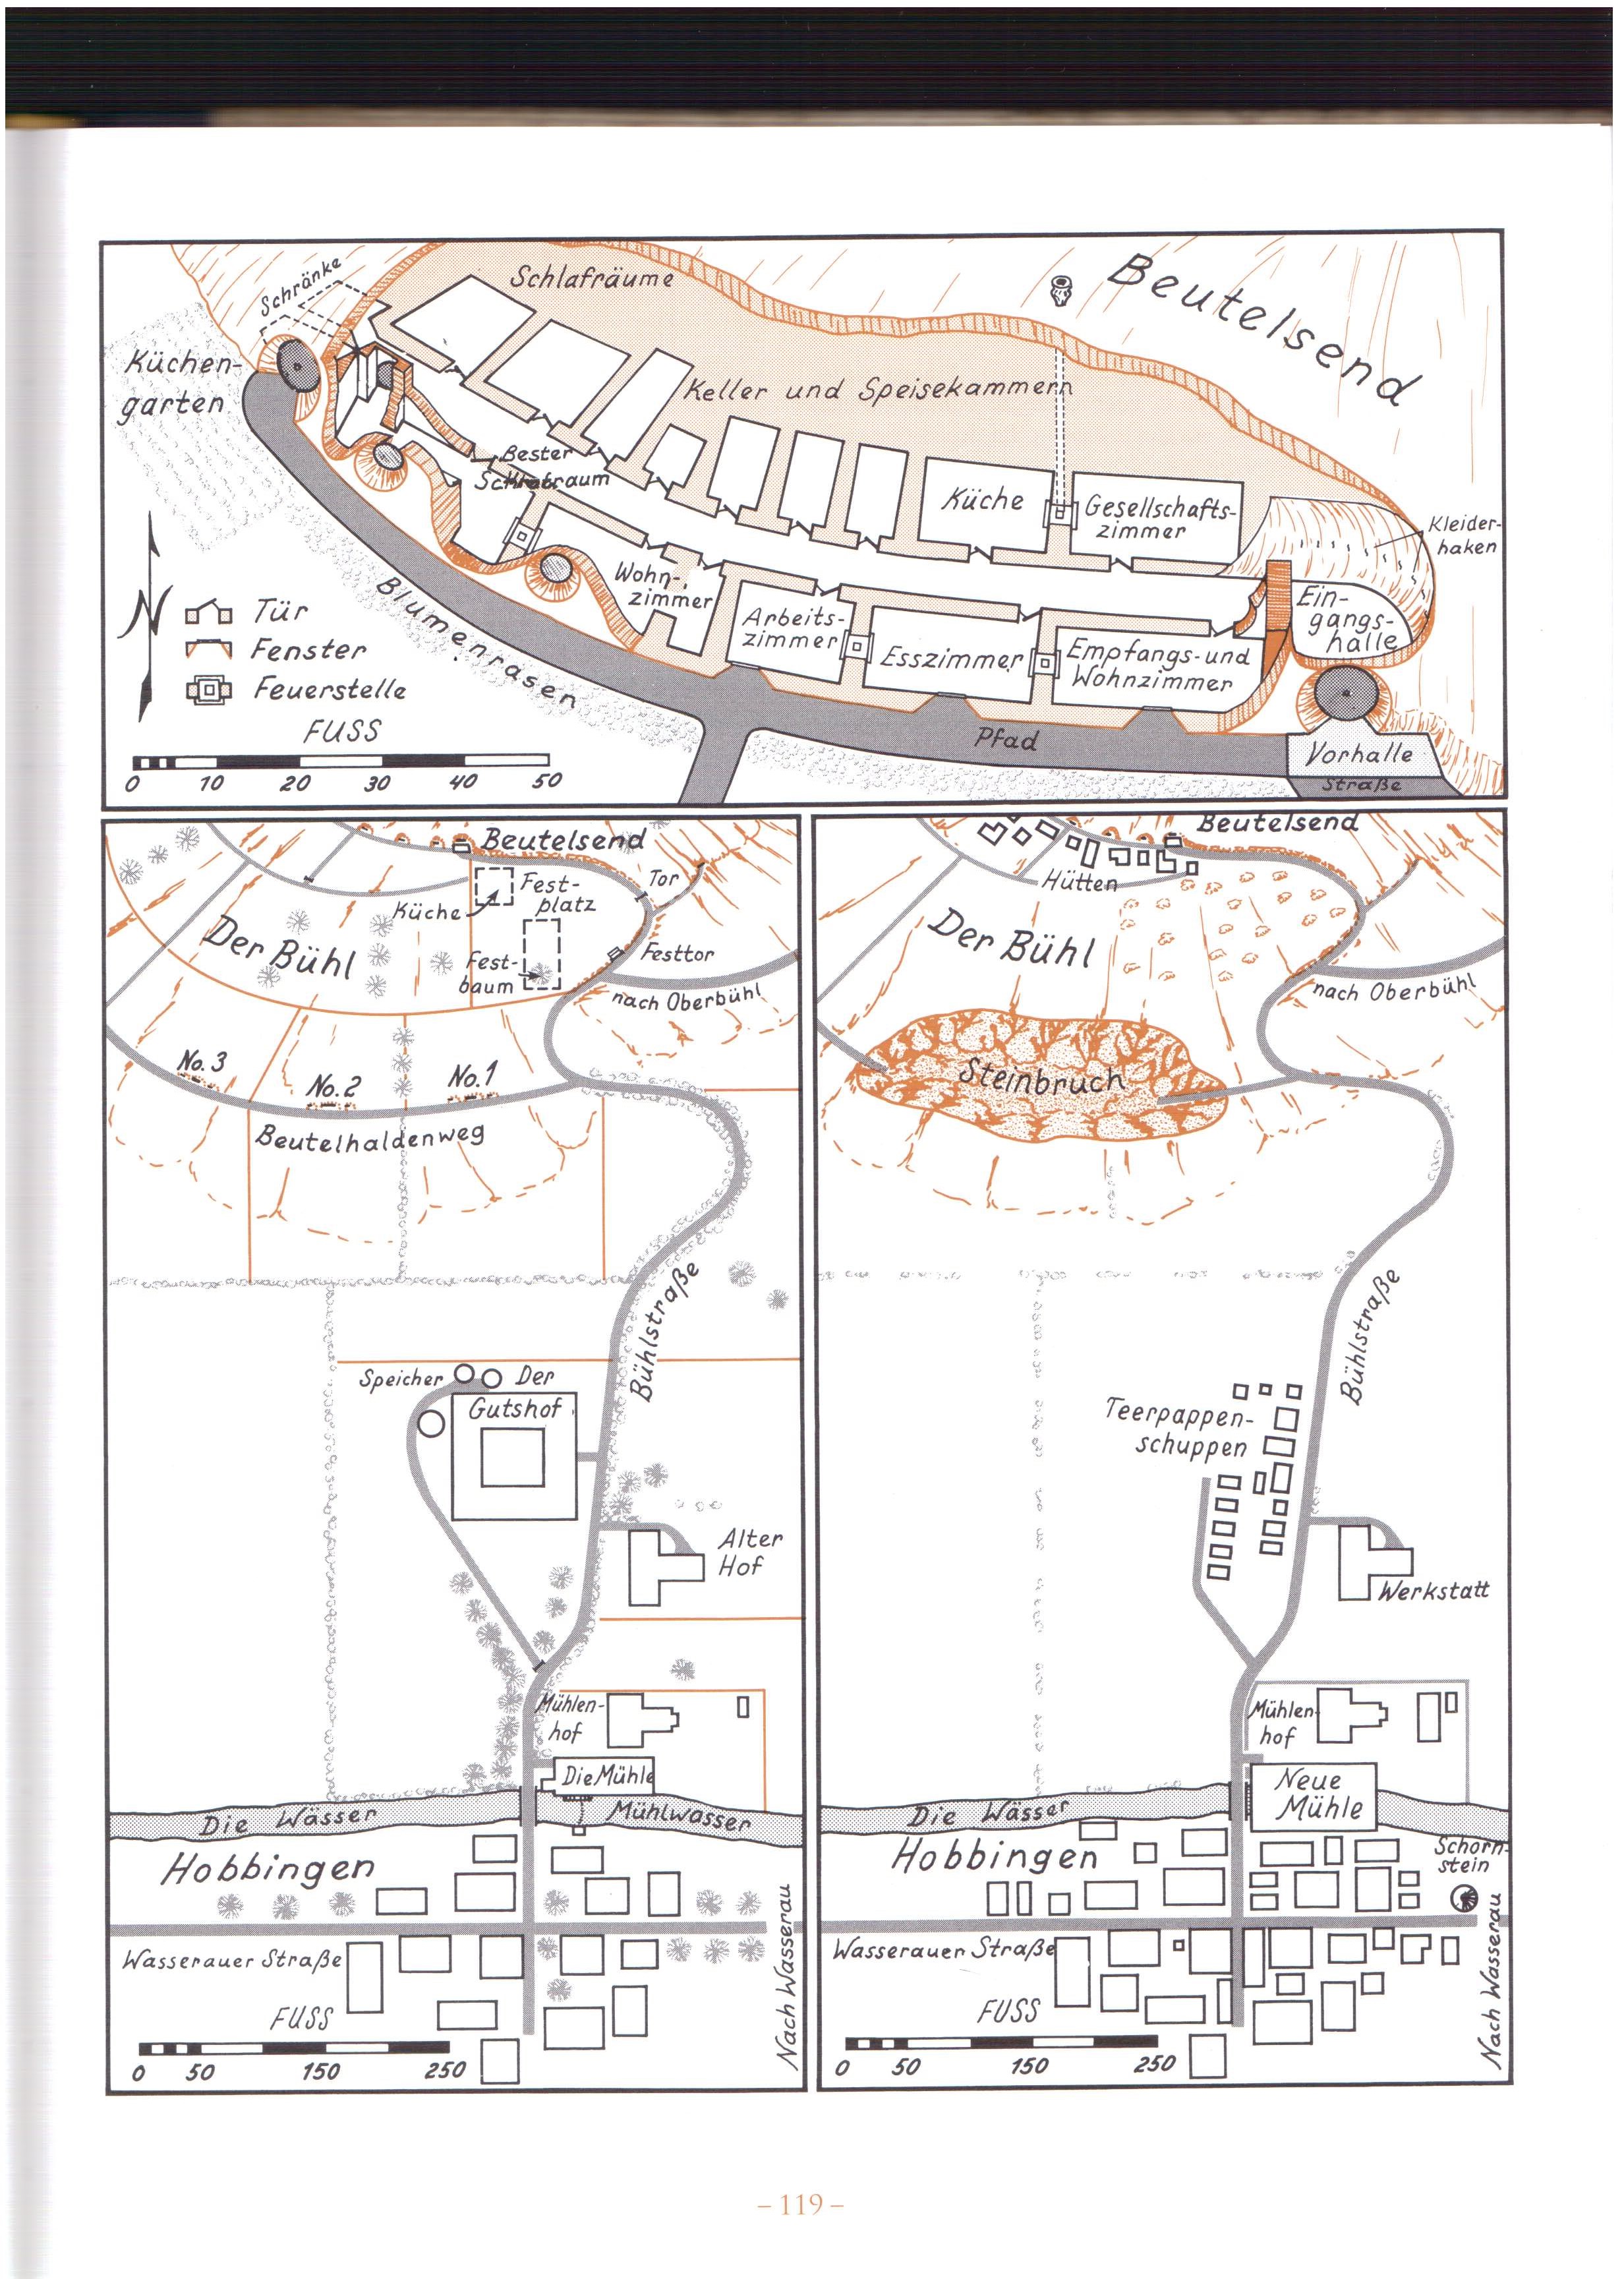 Beutelsend
Schlafräume
Schränke
Küchen-
garten
Keller und Speisekammern
Bester
Schlafraum
Küche
Gesellschafts-
zimmer
Kleider-
haken
Wohn-
zimmer
Arbeits-
zimmer
Esszimmer
Empfangs- und
Wohnzimmer
Ein-
gangs-
halle
Blumenrasen
Pfad
Vorhalle
Straße
N
Tür
Fenster
Feuerstelle
FUSS
0 10 20 30 40 50
Beutelsend
Tor
Fest-
platz
Küche
Der Bühl
Fest-
baum
Festtor
nach Oberbühl
No. 3
No. 2
No. 1
Beutelhaldenweg
Bühlstraße
Speicher
Der
Gutshof
Alter
Hof
Mühlen-
hof
Die Mühle
Die Wässer
Mühlwasser
Hobbingen
Wasserauer Straße
Nach Wasserau
FUSS
0 50 150 250
Beutelsend
Hütten
Der Bühl
nach Oberbühl
Steinbruch
Bühlstraße
Teerpappen-
schuppen
Werkstatt
Mühlen-
hof
Neue
Mühle
Die Wässer
Hobbingen
Schorn-
stein
Wasserauer Straße
Nach Wasserau
FUSS
0 50 150 250
– 119 –